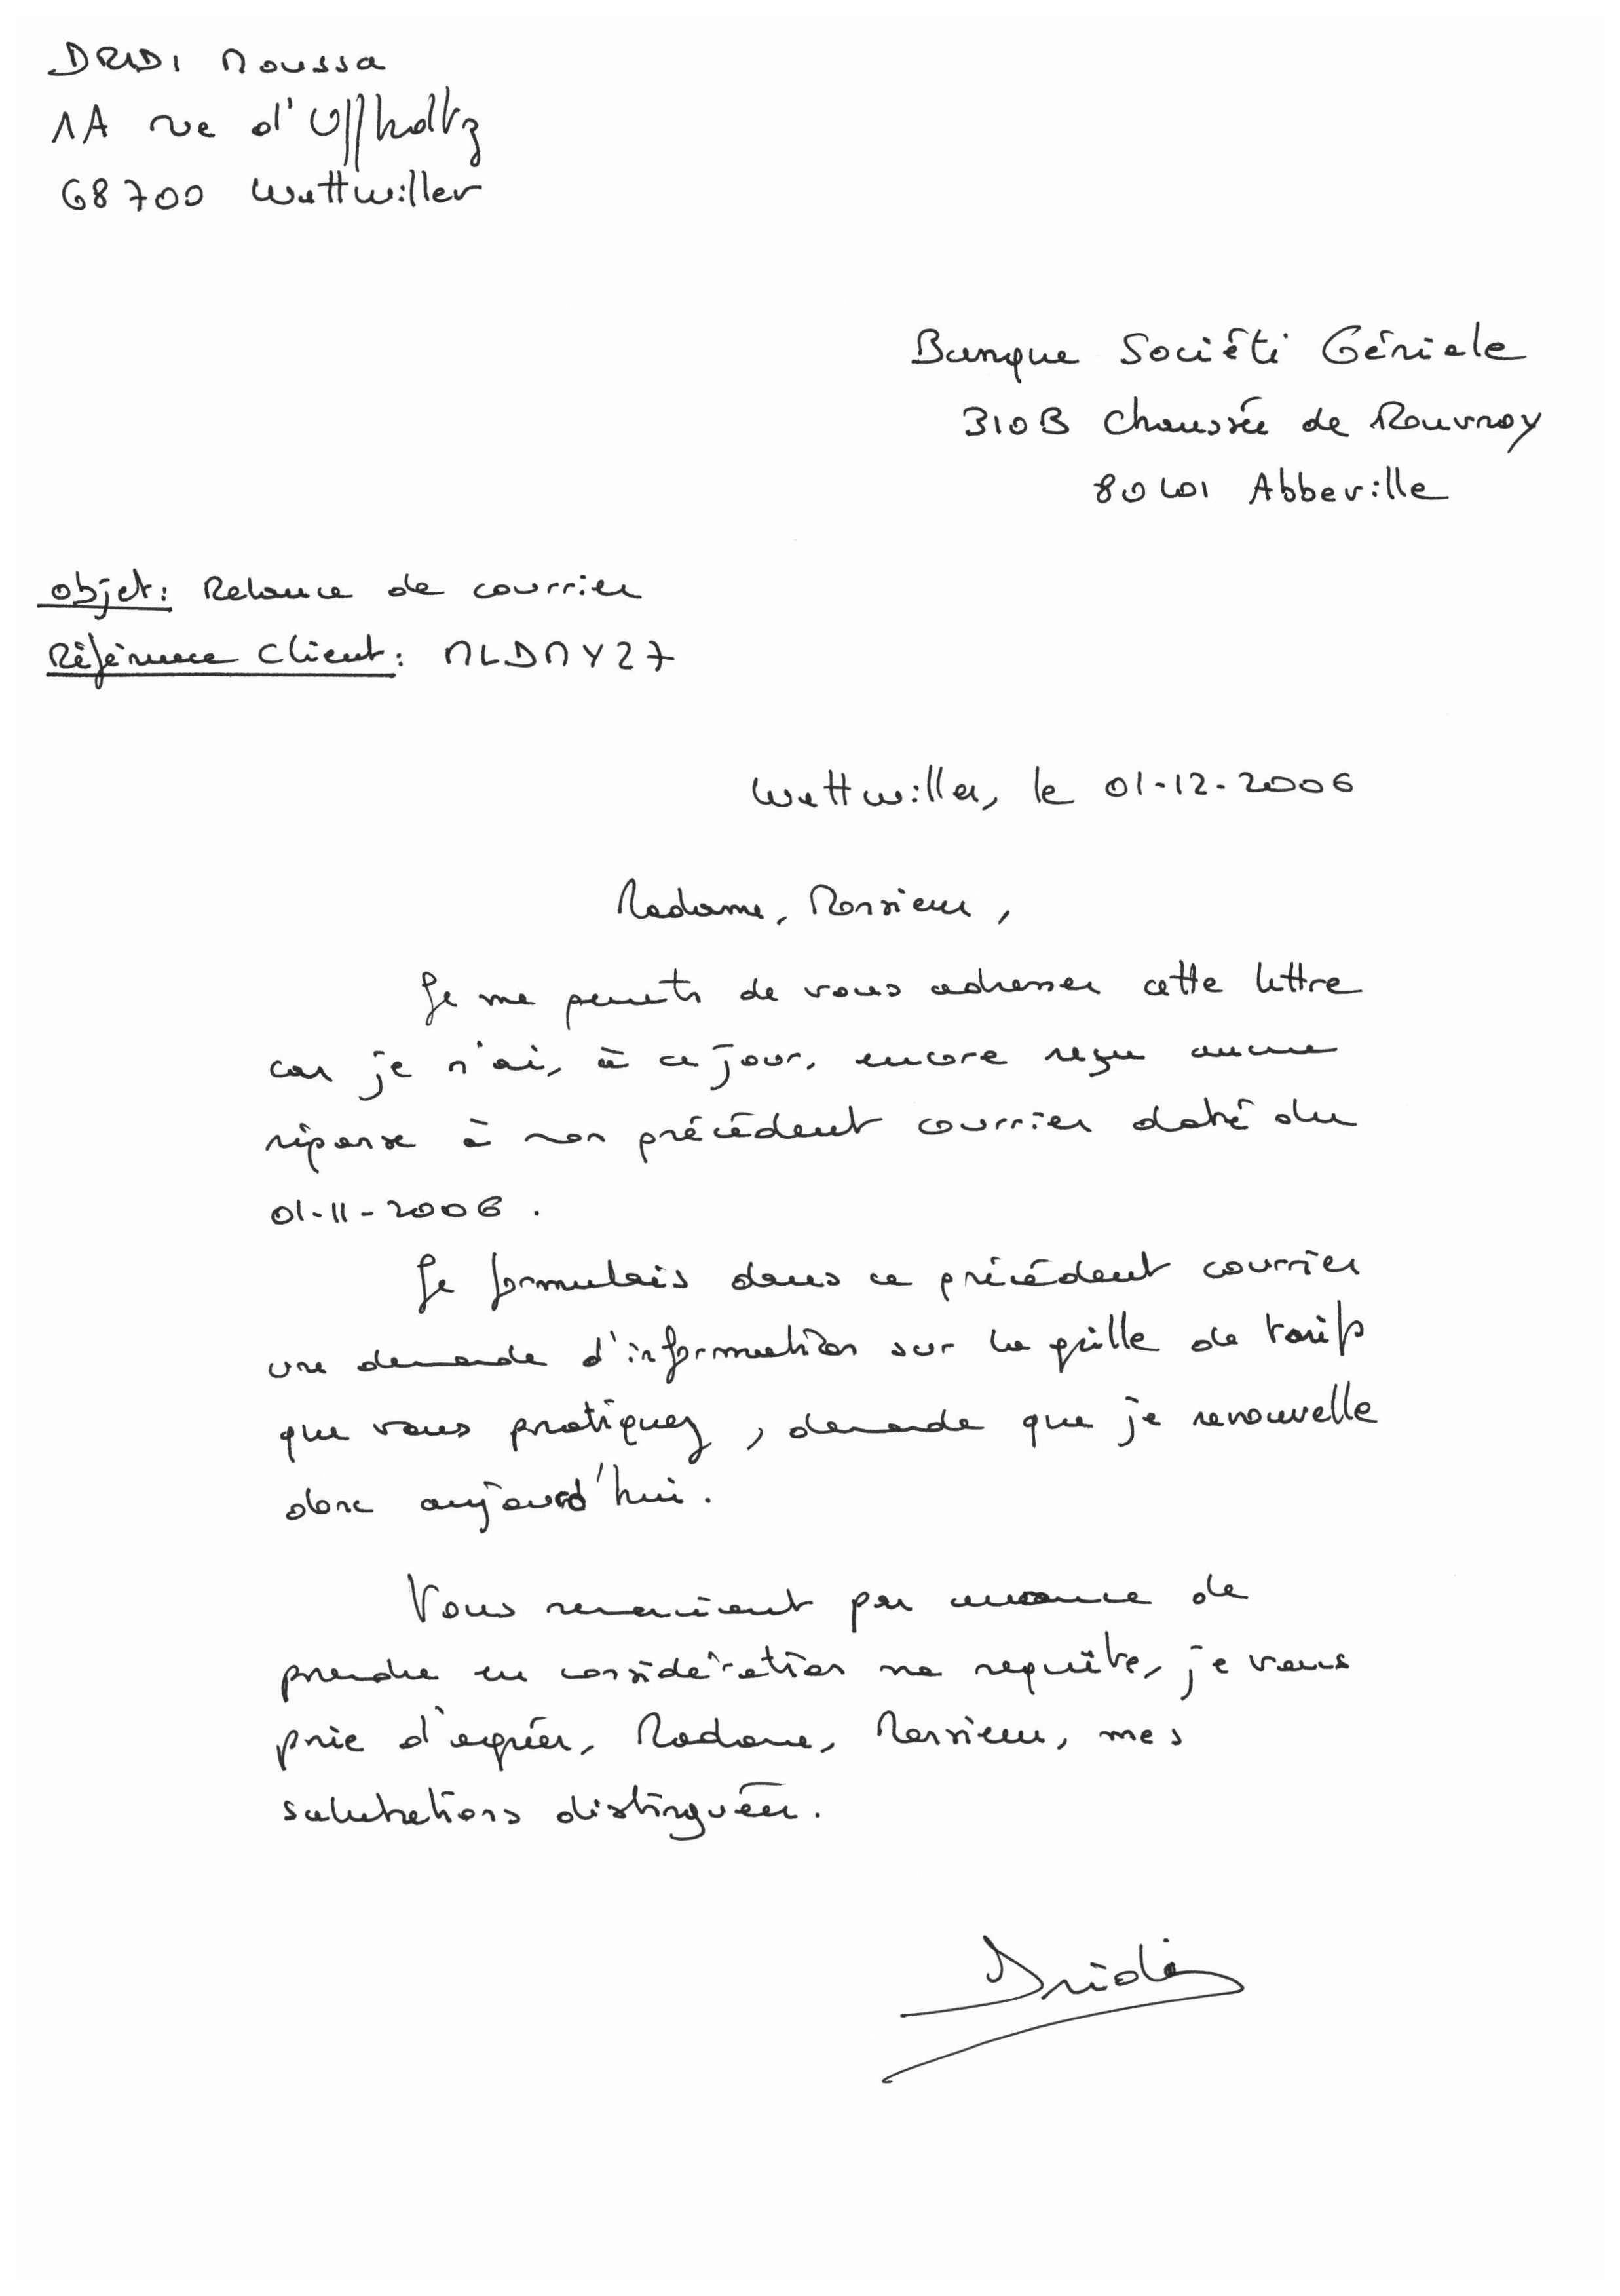 DRIDI Moussa
1A rue d'Uffholtz
68700 Wattwiller
Banque Société Géniale
310B Chaussée de Rouvroy
80401 Abbeville
Objet: Relance de courrier
Référence Client: MLDMY27
Wattwiller, le 01-12-2006
Madame, Monsieur,
Je me permets de vous adresser cette lettre
car je n'ai, à ce jour, encore reçu aucune
réponse à mon précédent courrier daté du
01-11-2006.
Je formulais dans ce précédent courrier
une demande d'information sur la grille de tarifs
que vous pratiquez, demande que je renouvelle
donc aujourd'hui.
Vous remerciant par avance de
prendre en considération ma requête, je vous
prie d'agréer, Madame, Monsieur, mes
salutations distinguées.
Dridi